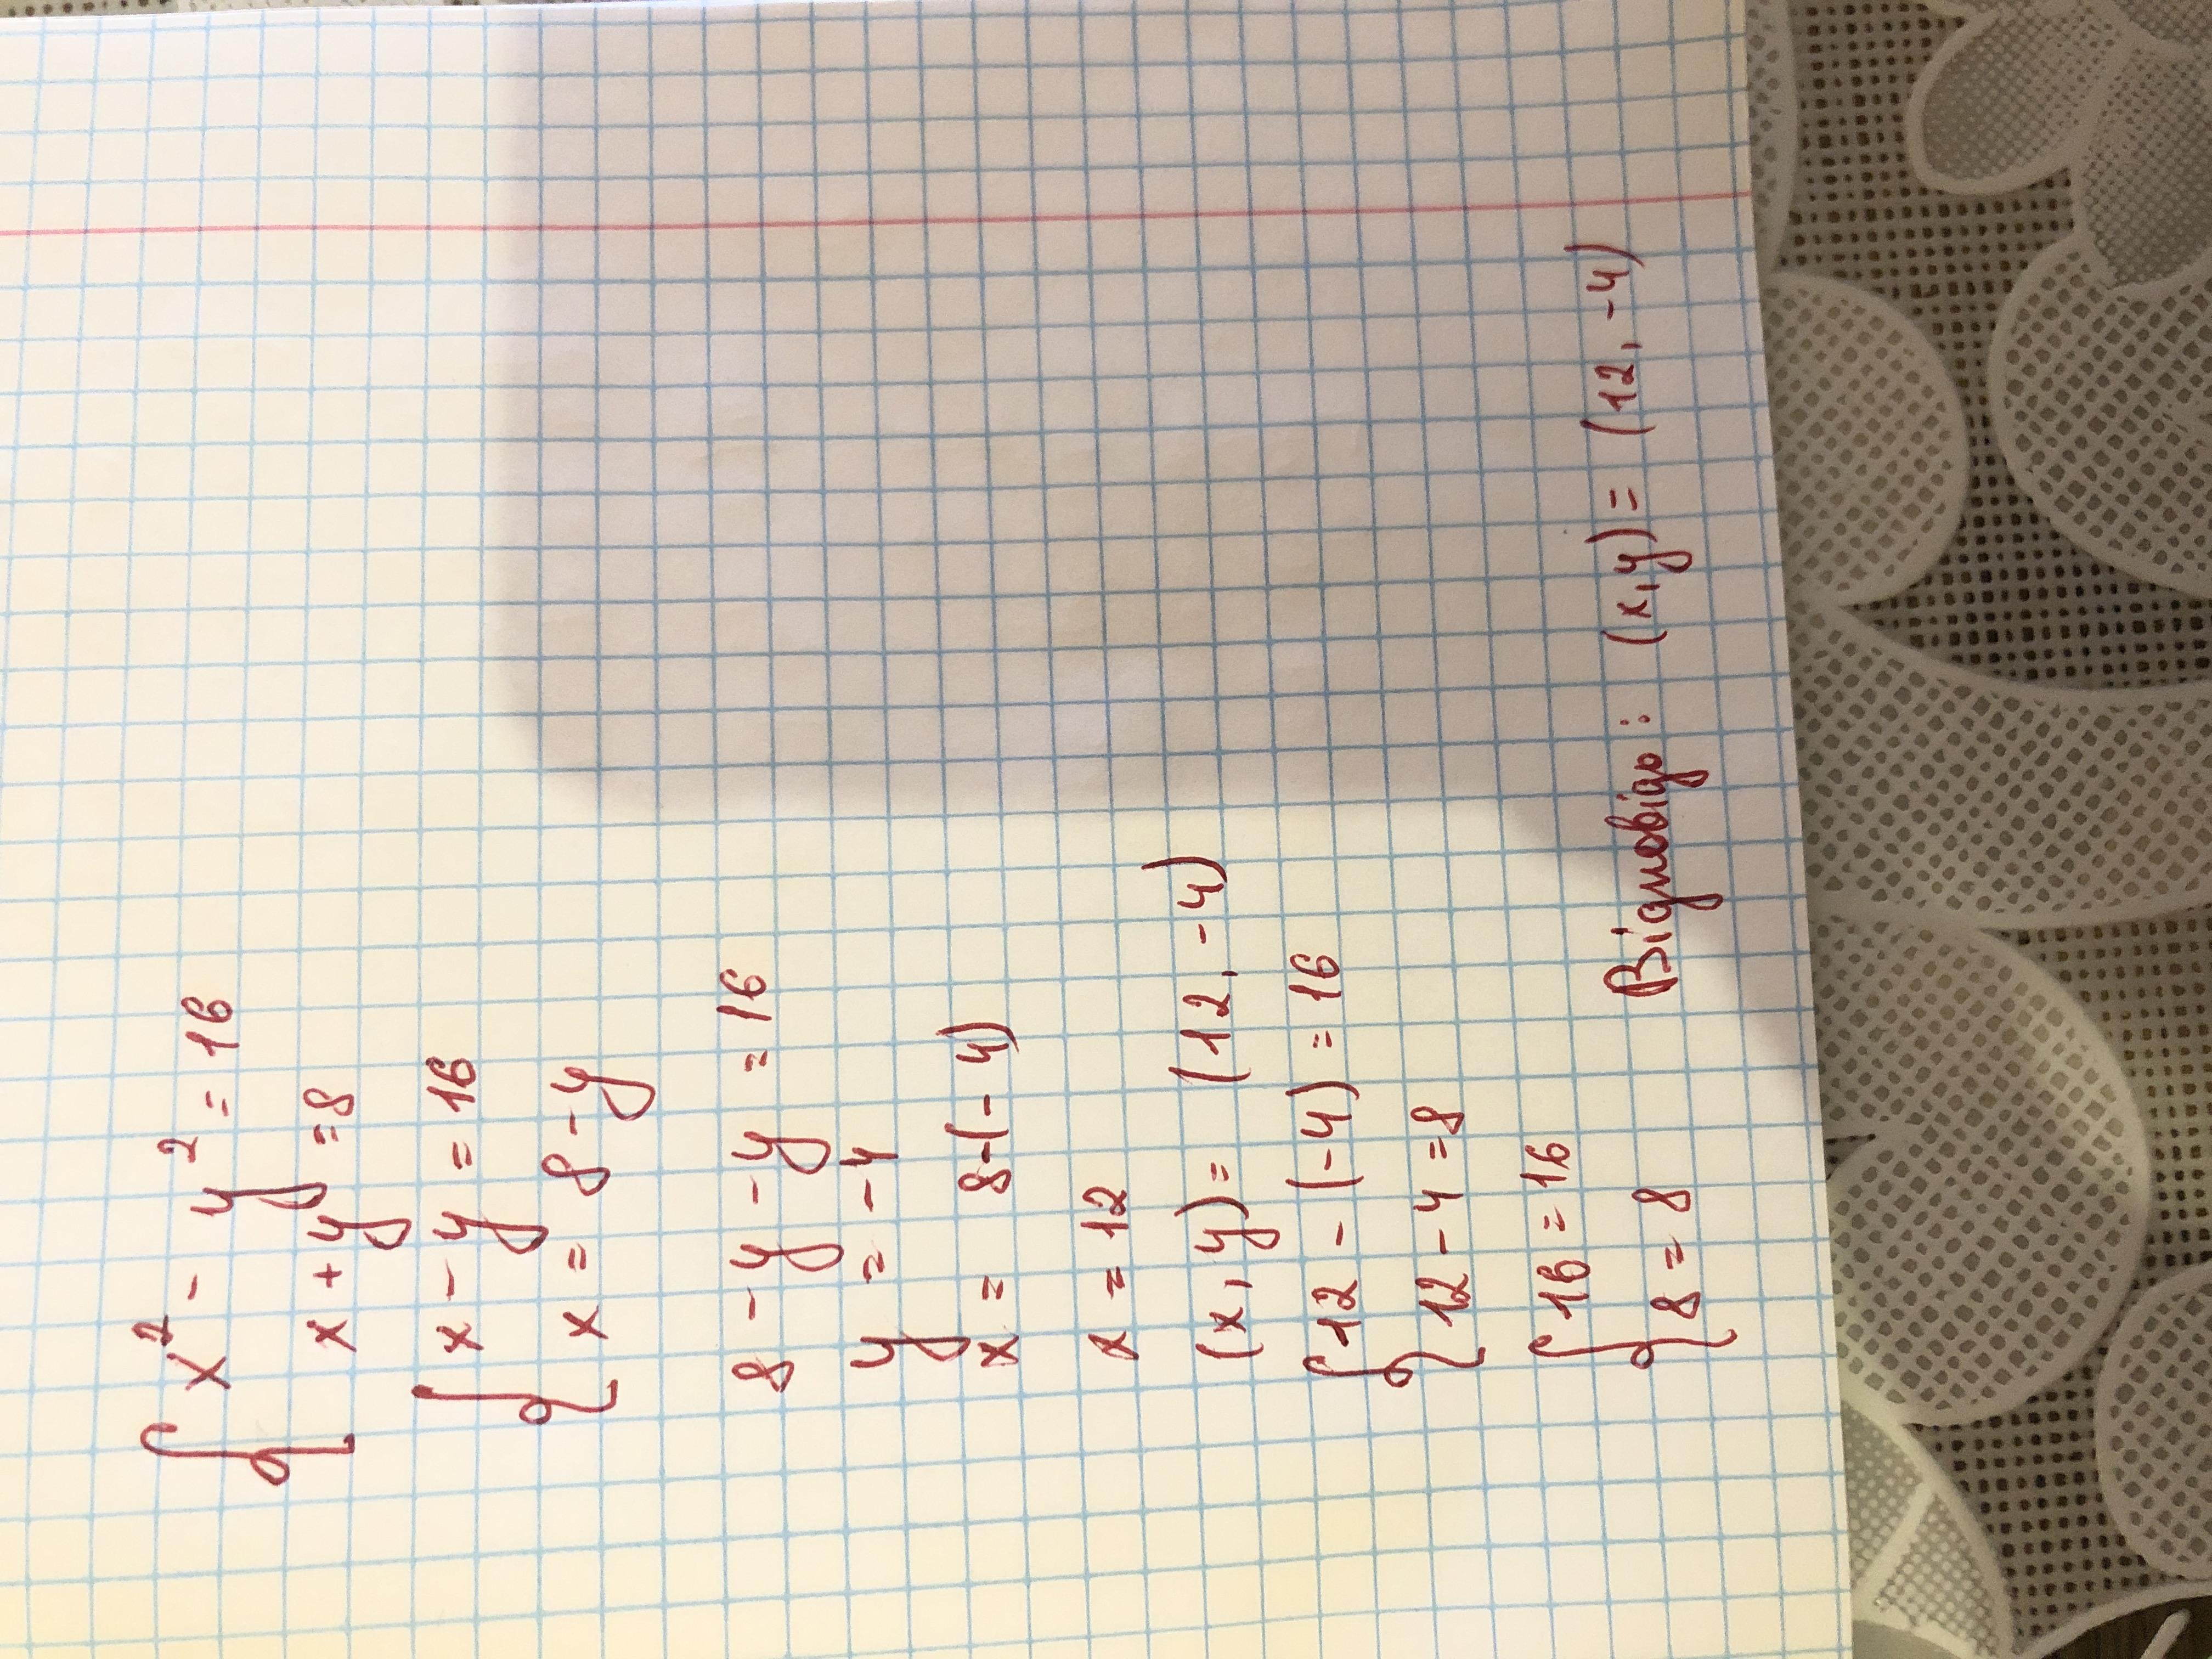 { x² - y² = 16
x + y = 8
{ x - y = 16
x = 8 - y
8 - y - y = 16
y = -4
x = 8-(-4)
x = 12
(x, y) = (12, -4)
{ 12 - (-4) = 16
12 - 4 = 8
{ 16 = 16
8 = 8
Відповідь: (x, y) = (12, -4)